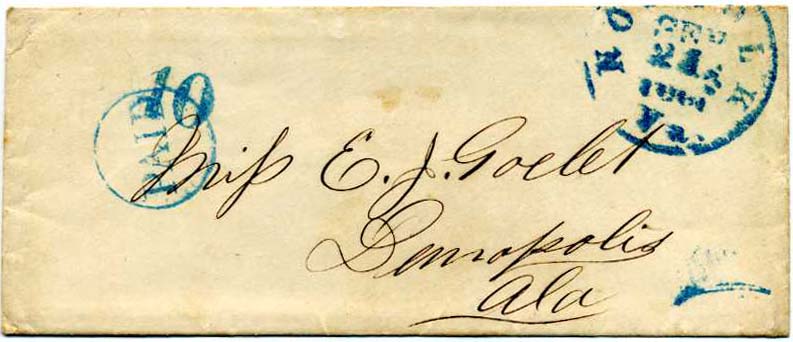 NORFOLK
SEP
1861
Va.
PAID
10
Miss E. J. Goelet
Demopolis
Ala